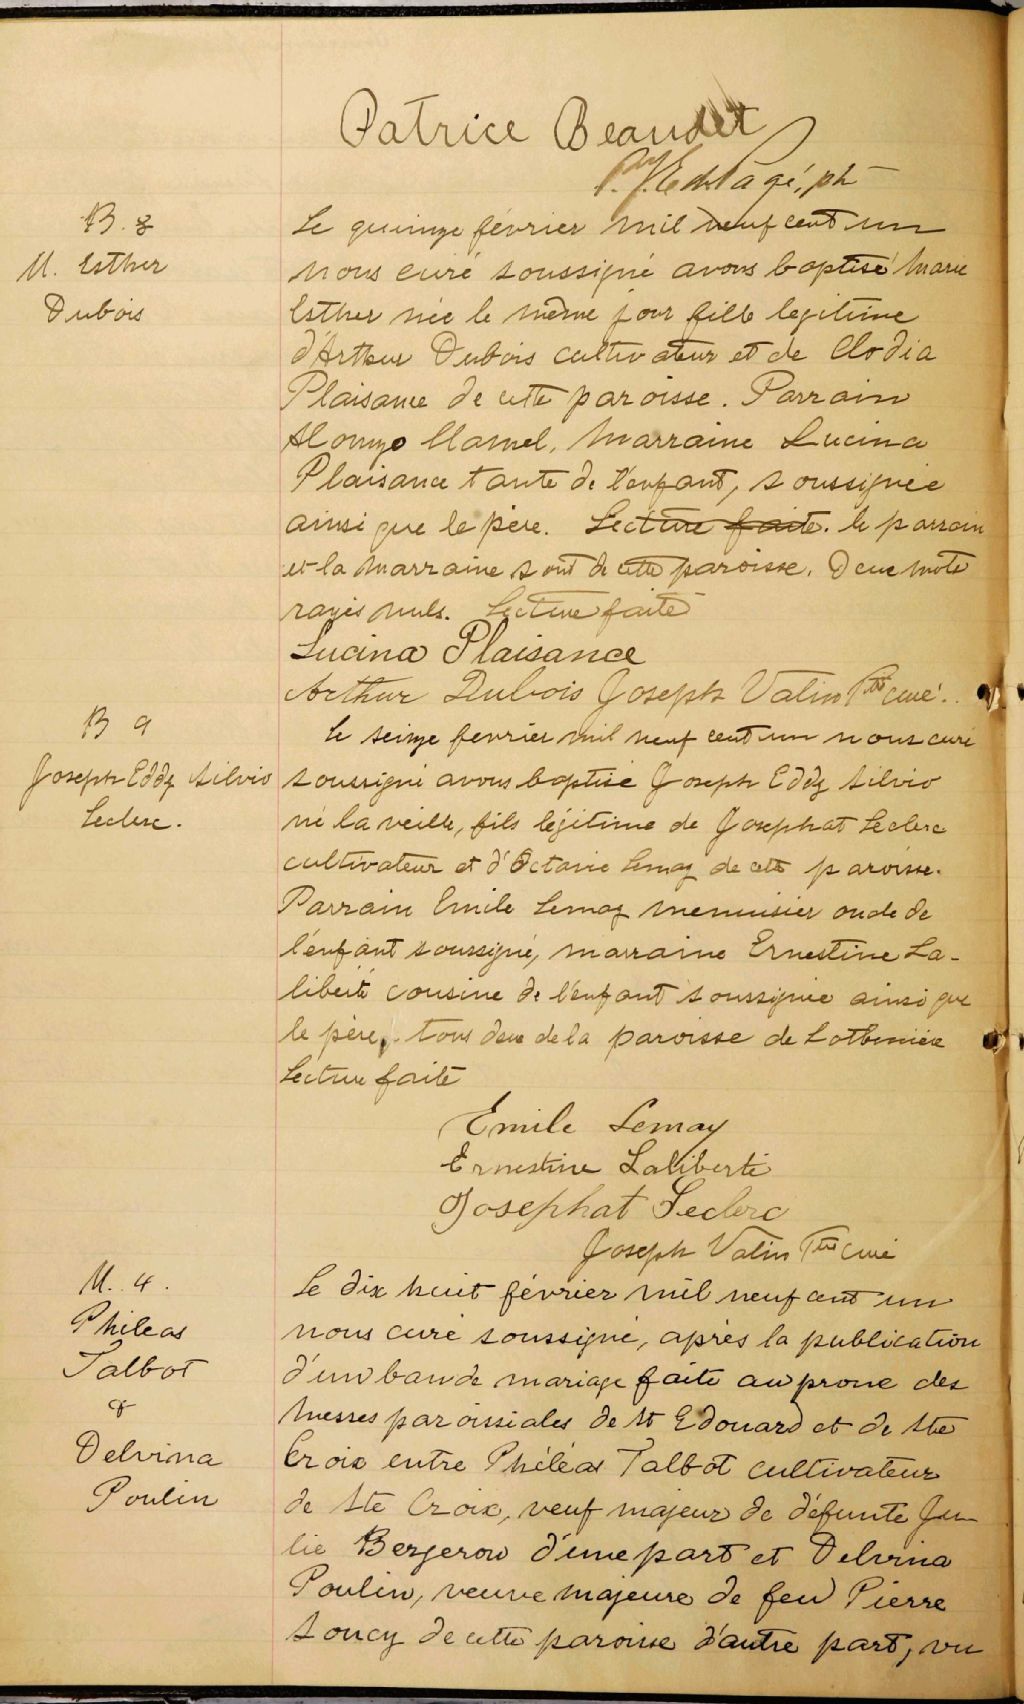 Patrice Beaudet
ptr
B. 8
M. Esther
Dubois
Le quinze février mil neuf cent un
nous curé soussigné avons baptisé Marie
Esther née le même jour fille legitime
d'Arthur Dubois cultivateur et de Clodia
Plaisance de cette paroisse. Parrain
Alonzo Hamel, Marraine Lucina
Plaisance tante de l'enfant, soussignée
ainsi que le père. Lecture faite. le parrain
et la marraine sont de cette paroisse. Deux mots
rayés nuls. Lecture faite
Lucina Plaisance
Arthur Dubois Joseph Valin Ptre curé.
B 9
Joseph Eddy Silvio
Leclerc.
Le seize fevrier mil neuf cent un nous curé
soussigné avons baptisé Joseph Eddy Silvio
né la veille, fils légitime de Josephat Leclerc
cultivateur et d'Octavie Lemay de cette paroisse.
Parrain Emile Lemay menuisier oncle de
l'enfant soussigné, marraine Ernestine La-
liberté cousine de l'enfant soussignée ainsi que
le père, tous deux de la paroisse de Lotbinière
Lecture faite
Emile Lemay
Ernestine Laliberté
Josephat Leclerc
Joseph Valin Ptre curé
M. 4.
Phileas
Talbot
&
Delvina
Poulin
Le dix huit février mil neuf cent un
nous curé soussigné, après la publication
d'un ban de mariage faite au prone des
messes paroissiales de St Edouard et de Ste
Croix entre Philéas Talbot cultivateur
de Ste Croix, veuf majeur de défunte Ju-
lie Bergeron d'une part et Delvina
Poulin, veuve majeure de feu Pierre
Soucy de cette paroisse d'autre part, vu